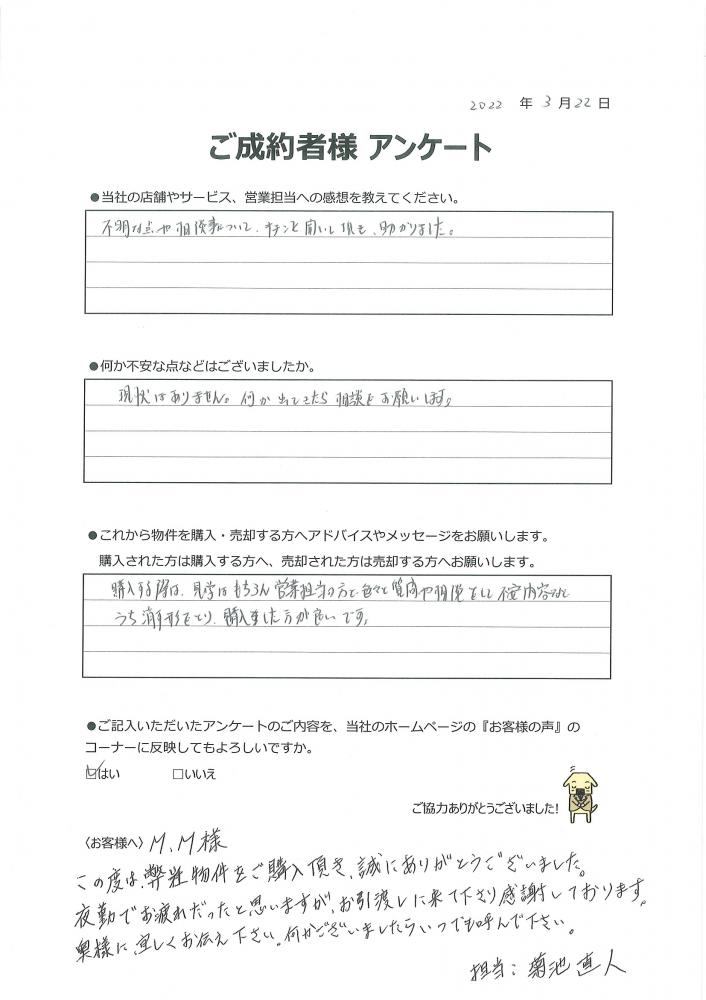 2022 年 3 月 22 日
ご成約者様 アンケート
●当社の店舗やサービス、営業担当への感想を教えてください。
不明な点や相談事について、キチンと聞いて頂き、助かりました。
●何か不安な点などはございましたか。
現状はありません。何か出てきたら相談をお願いします。
●これから物件を購入・売却する方へアドバイスやメッセージをお願いします。
購入された方は購入する方へ、売却された方は売却する方へお願いします。
購入する際は、見学はもちろん営業担当の方と色々と質問や相談をして不安内容など
うち消す形をとり、購入した方が良いです。
●ご記入いただいたアンケートのご内容を、当社のホームページの『お客様の声』の
コーナーに反映してもよろしいですか。
☑はい □いいえ
ご協力ありがとうございました!
〈お客様へ〉 M.M様
この度は、弊社物件をご購入頂き、誠にありがとうございました。
夜勤でお疲れだったと思いますが、お引渡しに来て下さり感謝しております。
奥様に、宜しくお伝え下さい。何かございましたらいつでも呼んで下さい。
担当:菊池直人